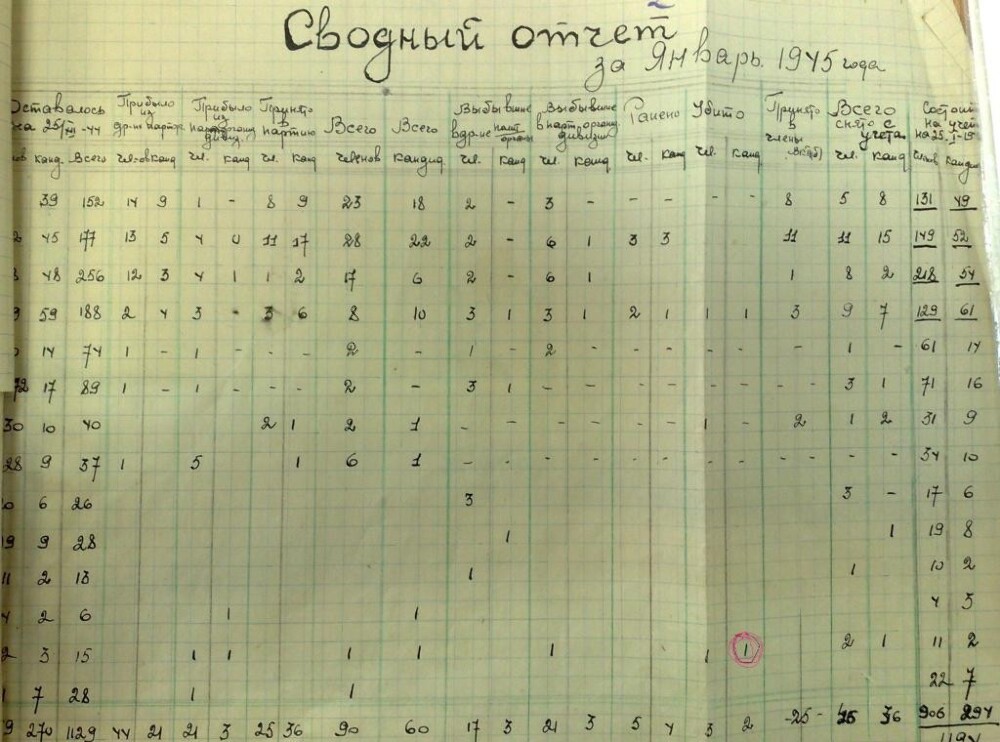 Сводный отчет
за Январь. 1945 года
Оставалось на 25/XII-44 Прибыло из др-их партор. Прибыло из дивиз. Принято в партию Всего Всего Выбывшие в др-ие Выбывшие в парт. дивизии Ранено Убито Принято в члены ВКП(б) Всего снято с учета на учете на 25.I-45
канд. Всего чл-ов канд чл. канд чл. канд членов кандид. чл. канд чл. канд чл. канд чл. канд чл. канд членов кандид
39 152 14 9 1 - 8 9 23 18 2 - 3 - - - - - 8 5 8 131 49
45 177 13 5 4 0 11 17 28 22 2 - 6 1 3 3 11 11 15 149 52
48 256 12 3 4 1 1 2 17 6 2 - 6 1 1 8 2 218 54
59 188 2 4 3 - 3 6 8 10 3 1 3 1 2 1 1 1 3 9 7 129 61
14 74 1 - 1 - - - 2 - 1 - 2 - - - - - - 1 - 61 14
72 17 89 1 - 1 - - - 2 - 3 1 - - - - - - - 3 1 71 16
30 10 40 2 1 2 1 - - - - - - 1 - 2 1 2 31 9
28 9 37 1 5 1 6 1 - - - - - - - - - - - 34 10
6 26 3 3 - 17 6
19 9 28 1 1 19 8
11 2 13 1 1 10 2
4 2 6 1 1 4 3
2 3 15 1 1 1 1 1 1 1 2 1 11 2
1 7 28 1 1 22 7
9 270 1129 44 21 21 3 25 36 90 60 17 3 21 3 5 4 3 2 -25- 45 36 906 294
1194